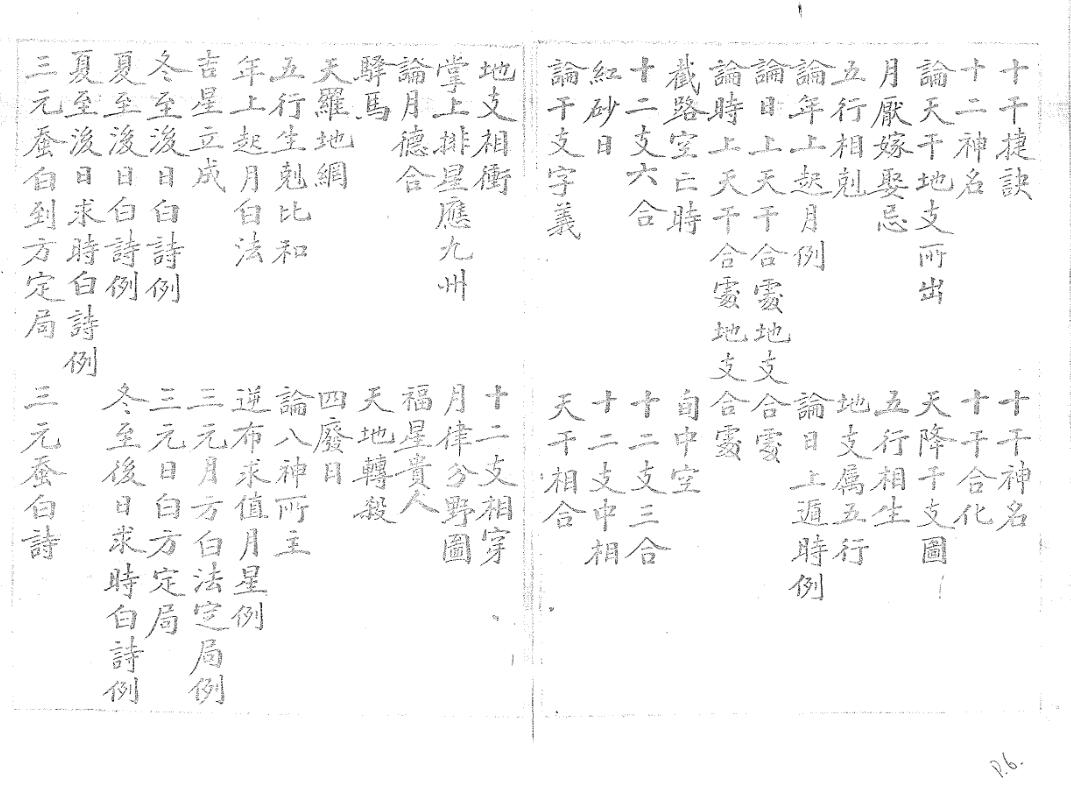 十干捷訣 十干神名
十二神名 十干合化
論天干地支所出 天降干支圖
月厭嫁娶忌 五行相生
五行相剋 地支属五行
論年上起月例 論日上遁時例
論日上天干合處地支合處
論時上天干合處地支合處
截路空亡時 旬中空
十二支六合 十二支三合
紅砂日 十二支中相
論干支字義 天干相合
地支相衝 十二支相穿
掌上排星應九州 月律分野圖
論月德合 福星貴人
驛馬 天地轉殺
天羅地網 四廢日
五行生剋比和 論八神所主
年上起月白法 逆布求值月星例
吉星立成 三元月方白法定局例
冬至後日白詩例 三元日白方定局
夏至後日白詩例 冬至後日求時白詩例
夏至後日求時白詩例
三元蚕白到方定局 三元蚕白詩
P.6.